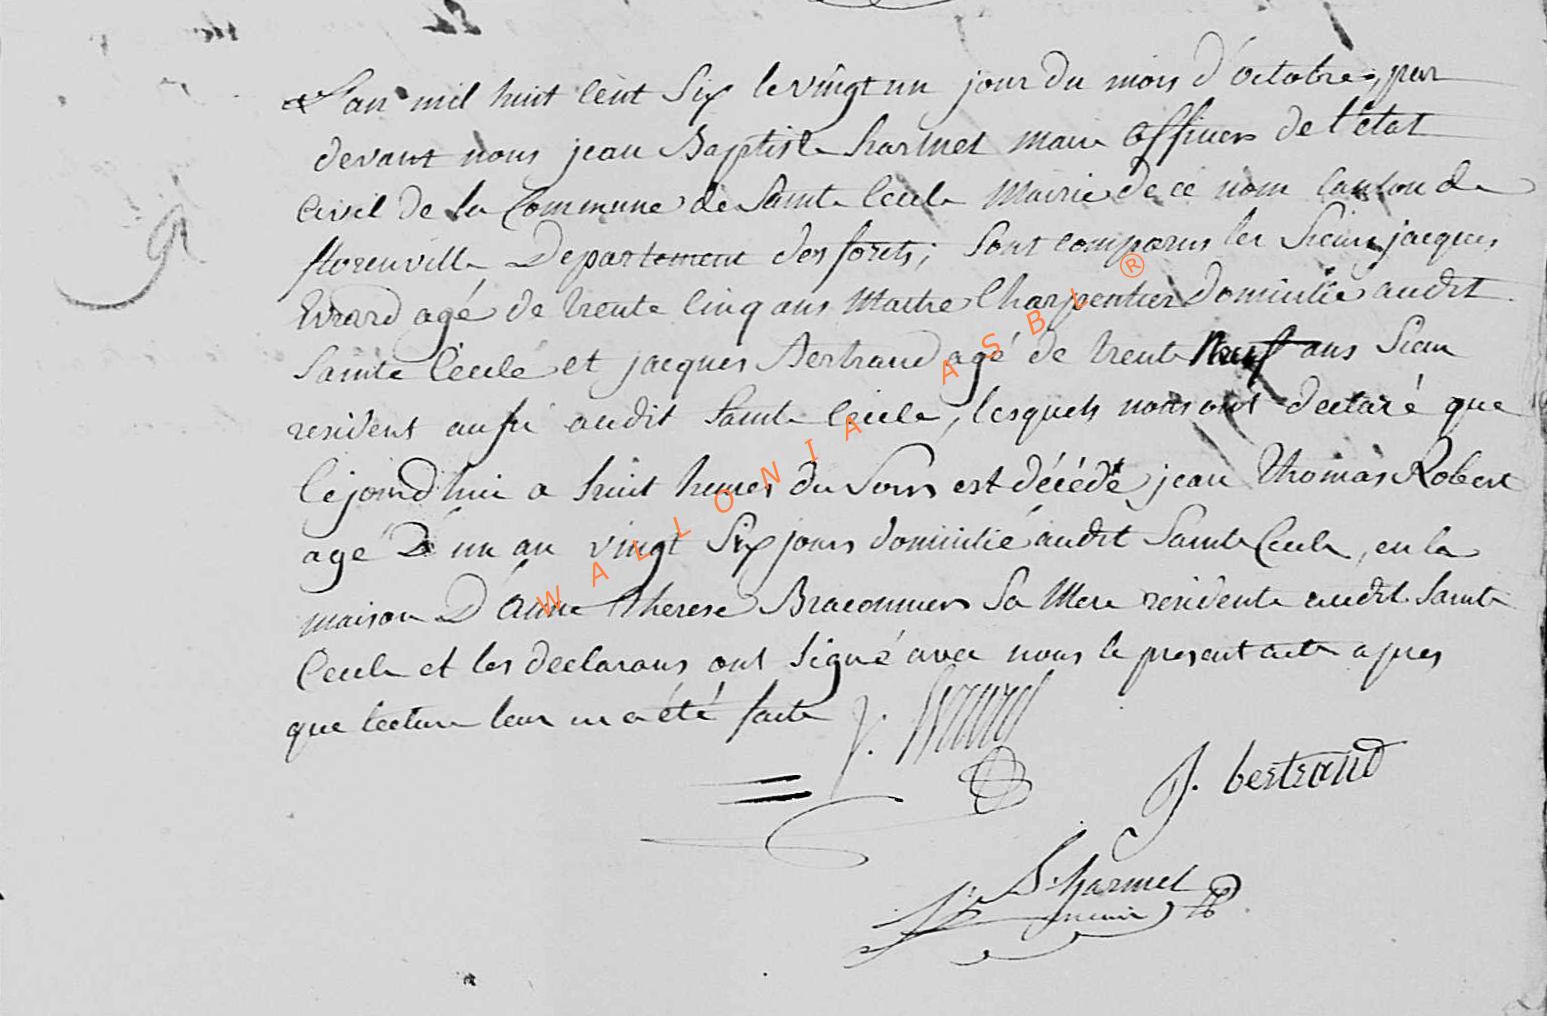 L'an mil huit cent six le vingt un jour du mois d'octobre, par
devant nous jean Baptiste harmel maire officier de l'état
civil de la Commune de Sainte Cecile Mairie de ce nom canton de
florenville Departement des forets; sont comparus les Sieurs jacques
Evrard agé de trente cinq ans Maitre Charpentier domicilié audit
Sainte Cécile et jacques Bertrand agé de trente Neuf ans
resident aussi audit Sainte Cecile, lesquels nous ont declaré que
cejourd'hui a huit heures du Soir est décédé jean Thomas Robert
agé D'un an vingt Six jours domicilié audit Sainte Cecile, en la
maison D'Anne Therese Braconnier Sa Mere residente audit Sainte
Cecile et les declarans ont signé avec nous le present acte apres
que lecture leur en a été faite J. Evrard
J. bertrand
J. B. harmel
maire
WALLONIA ASBL ®